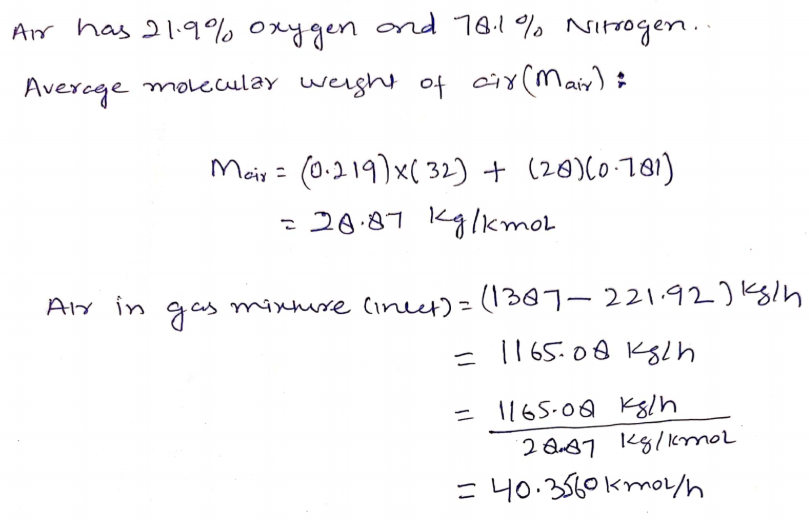 Air has 21.9% oxygen and 78.1% Nitrogen..
Average molecular weight of air (Mair) :
Mair = (0.219)x(32) + (28)(0.781)
= 28.87 Kg/kmol
Air in gas mixture (inlet) = (1387 - 221.92) Kg/h
= 1165.08 Kg/h
= 1165.08 Kg/h
28.87 Kg/kmol
= 40.3560 kmol/h